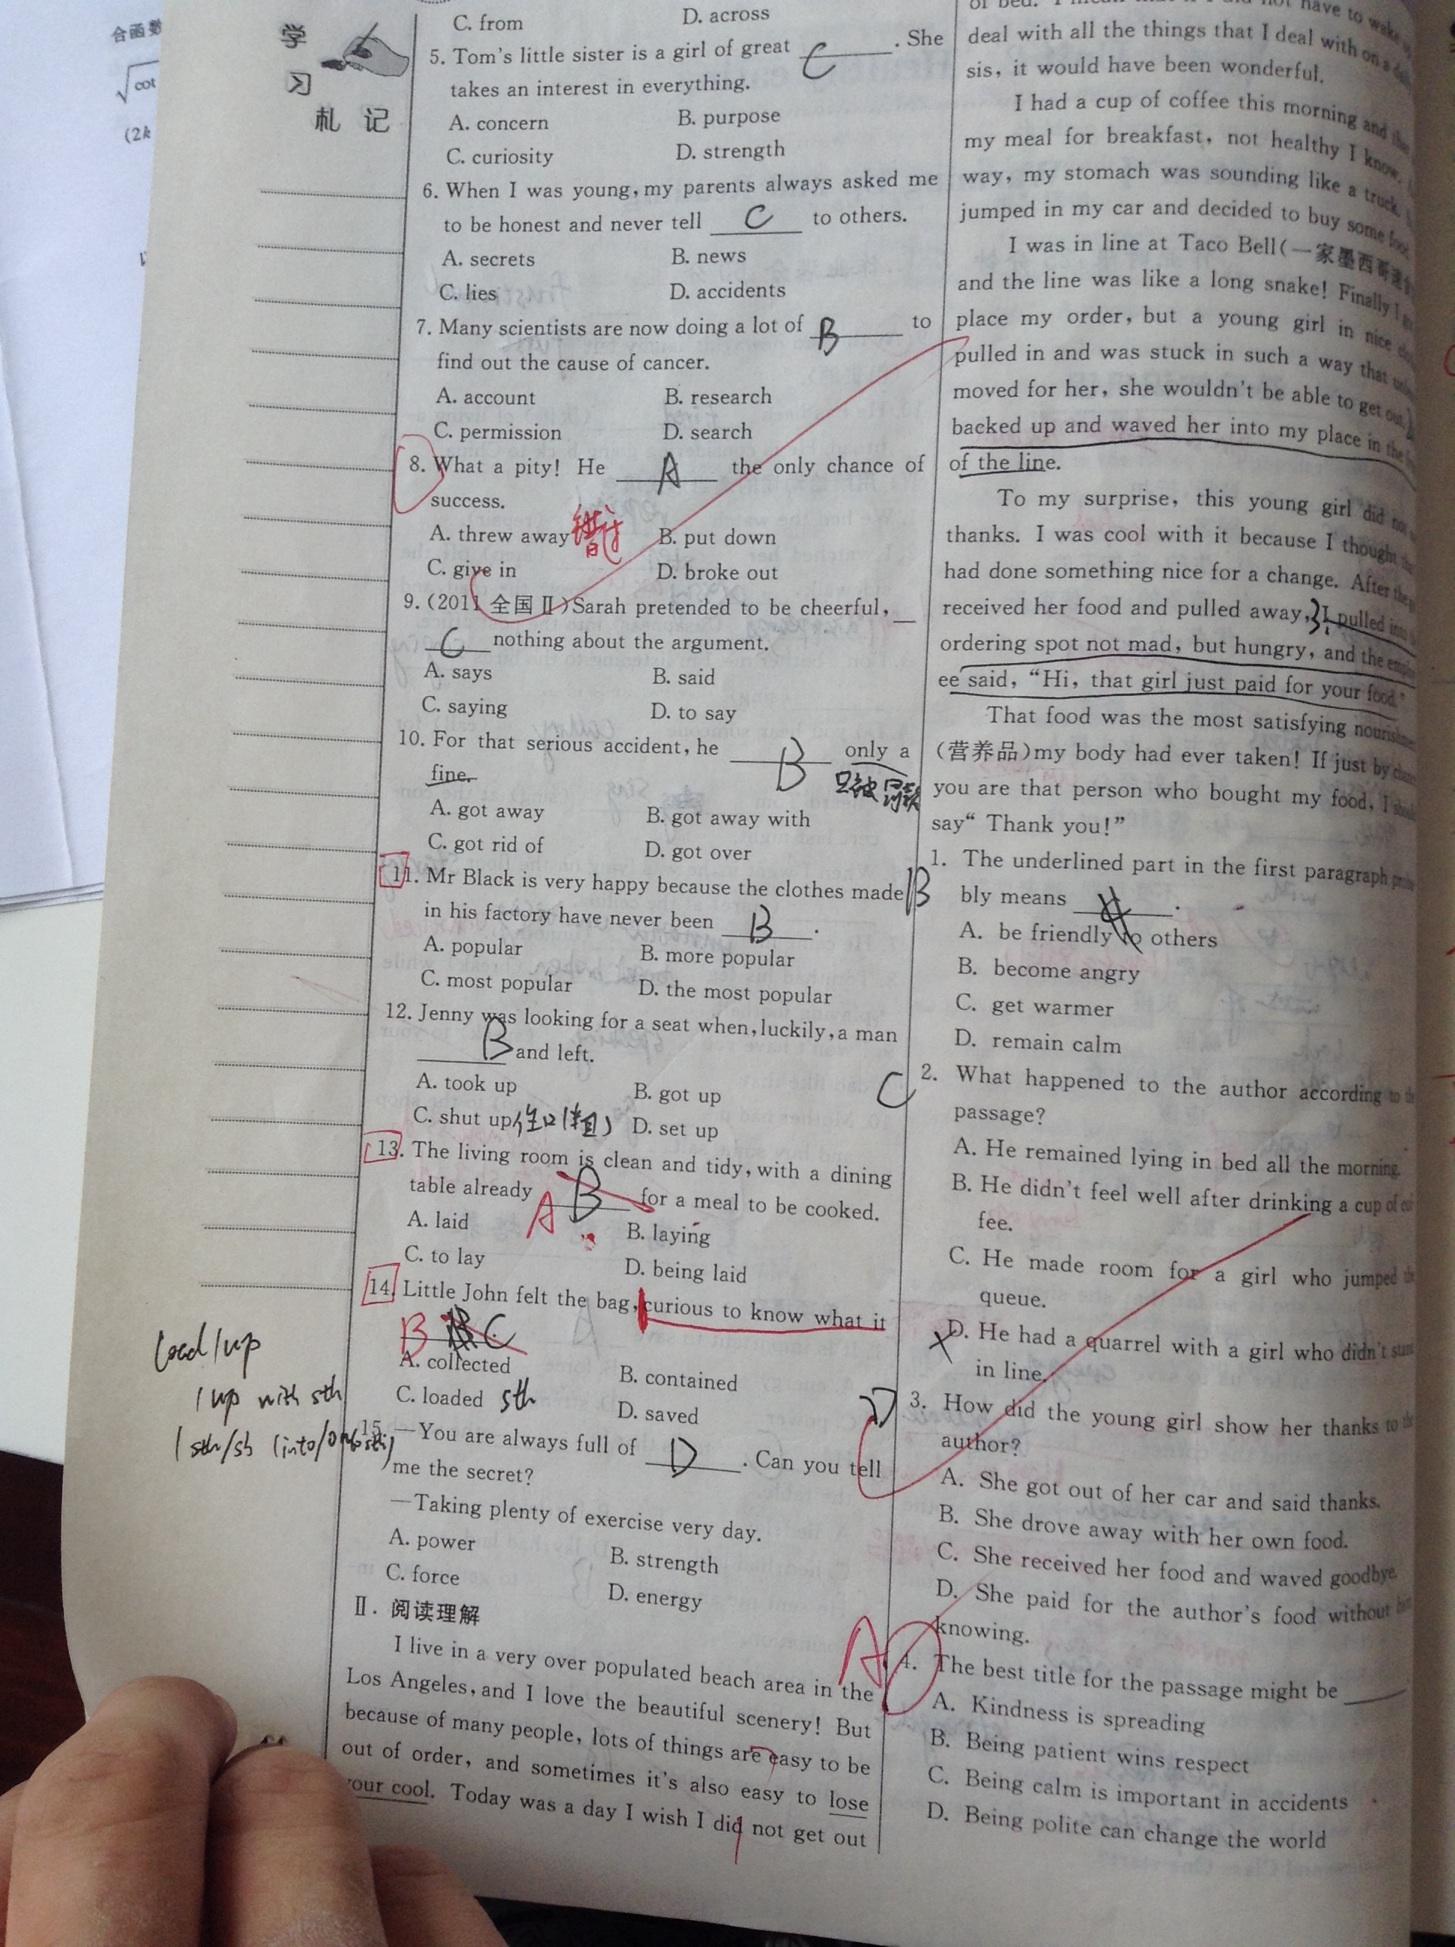 合函数
cot
(2k
学
习
札 记
C. from D. across
5. Tom's little sister is a girl of great C . She
takes an interest in everything.
A. concern B. purpose
C. curiosity D. strength
6. When I was young, my parents always asked me
to be honest and never tell C to others.
A. secrets B. news
C. lies D. accidents
7. Many scientists are now doing a lot of B to
find out the cause of cancer.
A. account B. research
C. permission D. search
8. What a pity! He A the only chance of
success.
A. threw away 错过 B. put down
C. give in D. broke out
9. (2011 全国Ⅱ) Sarah pretended to be cheerful,
C nothing about the argument.
A. says B. said
C. saying D. to say
10. For that serious accident, he B only a
fine. 只被罚款
A. got away B. got away with
C. got rid of D. got over
11. Mr Black is very happy because the clothes made
in his factory have never been B .
A. popular B. more popular
C. most popular D. the most popular
12. Jenny was looking for a seat when, luckily, a man
B and left.
A. took up B. got up
C. shut up 住口(粗) D. set up
13. The living room is clean and tidy, with a dining
table already A B for a meal to be cooked.
A. laid B. laying
C. to lay D. being laid
14. Little John felt the bag, curious to know what it
B C
A. collected B. contained
C. loaded sth D. saved
load/up
l up with sth
l sth/sb (into/onto sth)
15. —You are always full of D . Can you tell
me the secret?
—Taking plenty of exercise very day.
A. power B. strength
C. force D. energy
Ⅱ. 阅读理解
I live in a very over populated beach area in the
Los Angeles, and I love the beautiful scenery! But
because of many people, lots of things are easy to be
out of order, and sometimes it's also easy to lose
your cool. Today was a day I wish I did not get out
of bed. I mean that if I did not have to wake
deal with all the things that I deal with on a
sis, it would have been wonderful.
I had a cup of coffee this morning and
my meal for breakfast, not healthy I know.
way, my stomach was sounding like a truck.
jumped in my car and decided to buy some food
I was in line at Taco Bell(一家墨西哥
and the line was like a long snake! Finally I
place my order, but a young girl in nice
pulled in and was stuck in such a way that
moved for her, she wouldn't be able to get out.
backed up and waved her into my place in the
of the line.
To my surprise, this young girl did
thanks. I was cool with it because I thought
had done something nice for a change. After the
received her food and pulled away, 3 I pulled
ordering spot not mad, but hungry, and the
ee said, “Hi, that girl just paid for your food.”
That food was the most satisfying
(营养品)my body had ever taken! If just by
you are that person who bought my food, I
say“ Thank you!”
B 1. The underlined part in the first paragraph
bly means .
A. be friendly to others
B. become angry
C. get warmer
D. remain calm
C 2. What happened to the author according to
passage?
A. He remained lying in bed all the morning.
B. He didn't feel well after drinking a cup of
fee.
C. He made room for a girl who jumped
queue.
X D. He had a quarrel with a girl who didn't
in line.
D 3. How did the young girl show her thanks to
author?
A. She got out of her car and said thanks.
B. She drove away with her own food.
C. She received her food and waved goodbye.
D. She paid for the author's food without
knowing.
A 4. The best title for the passage might be
A. Kindness is spreading
B. Being patient wins respect
C. Being calm is important in accidents
D. Being polite can change the world